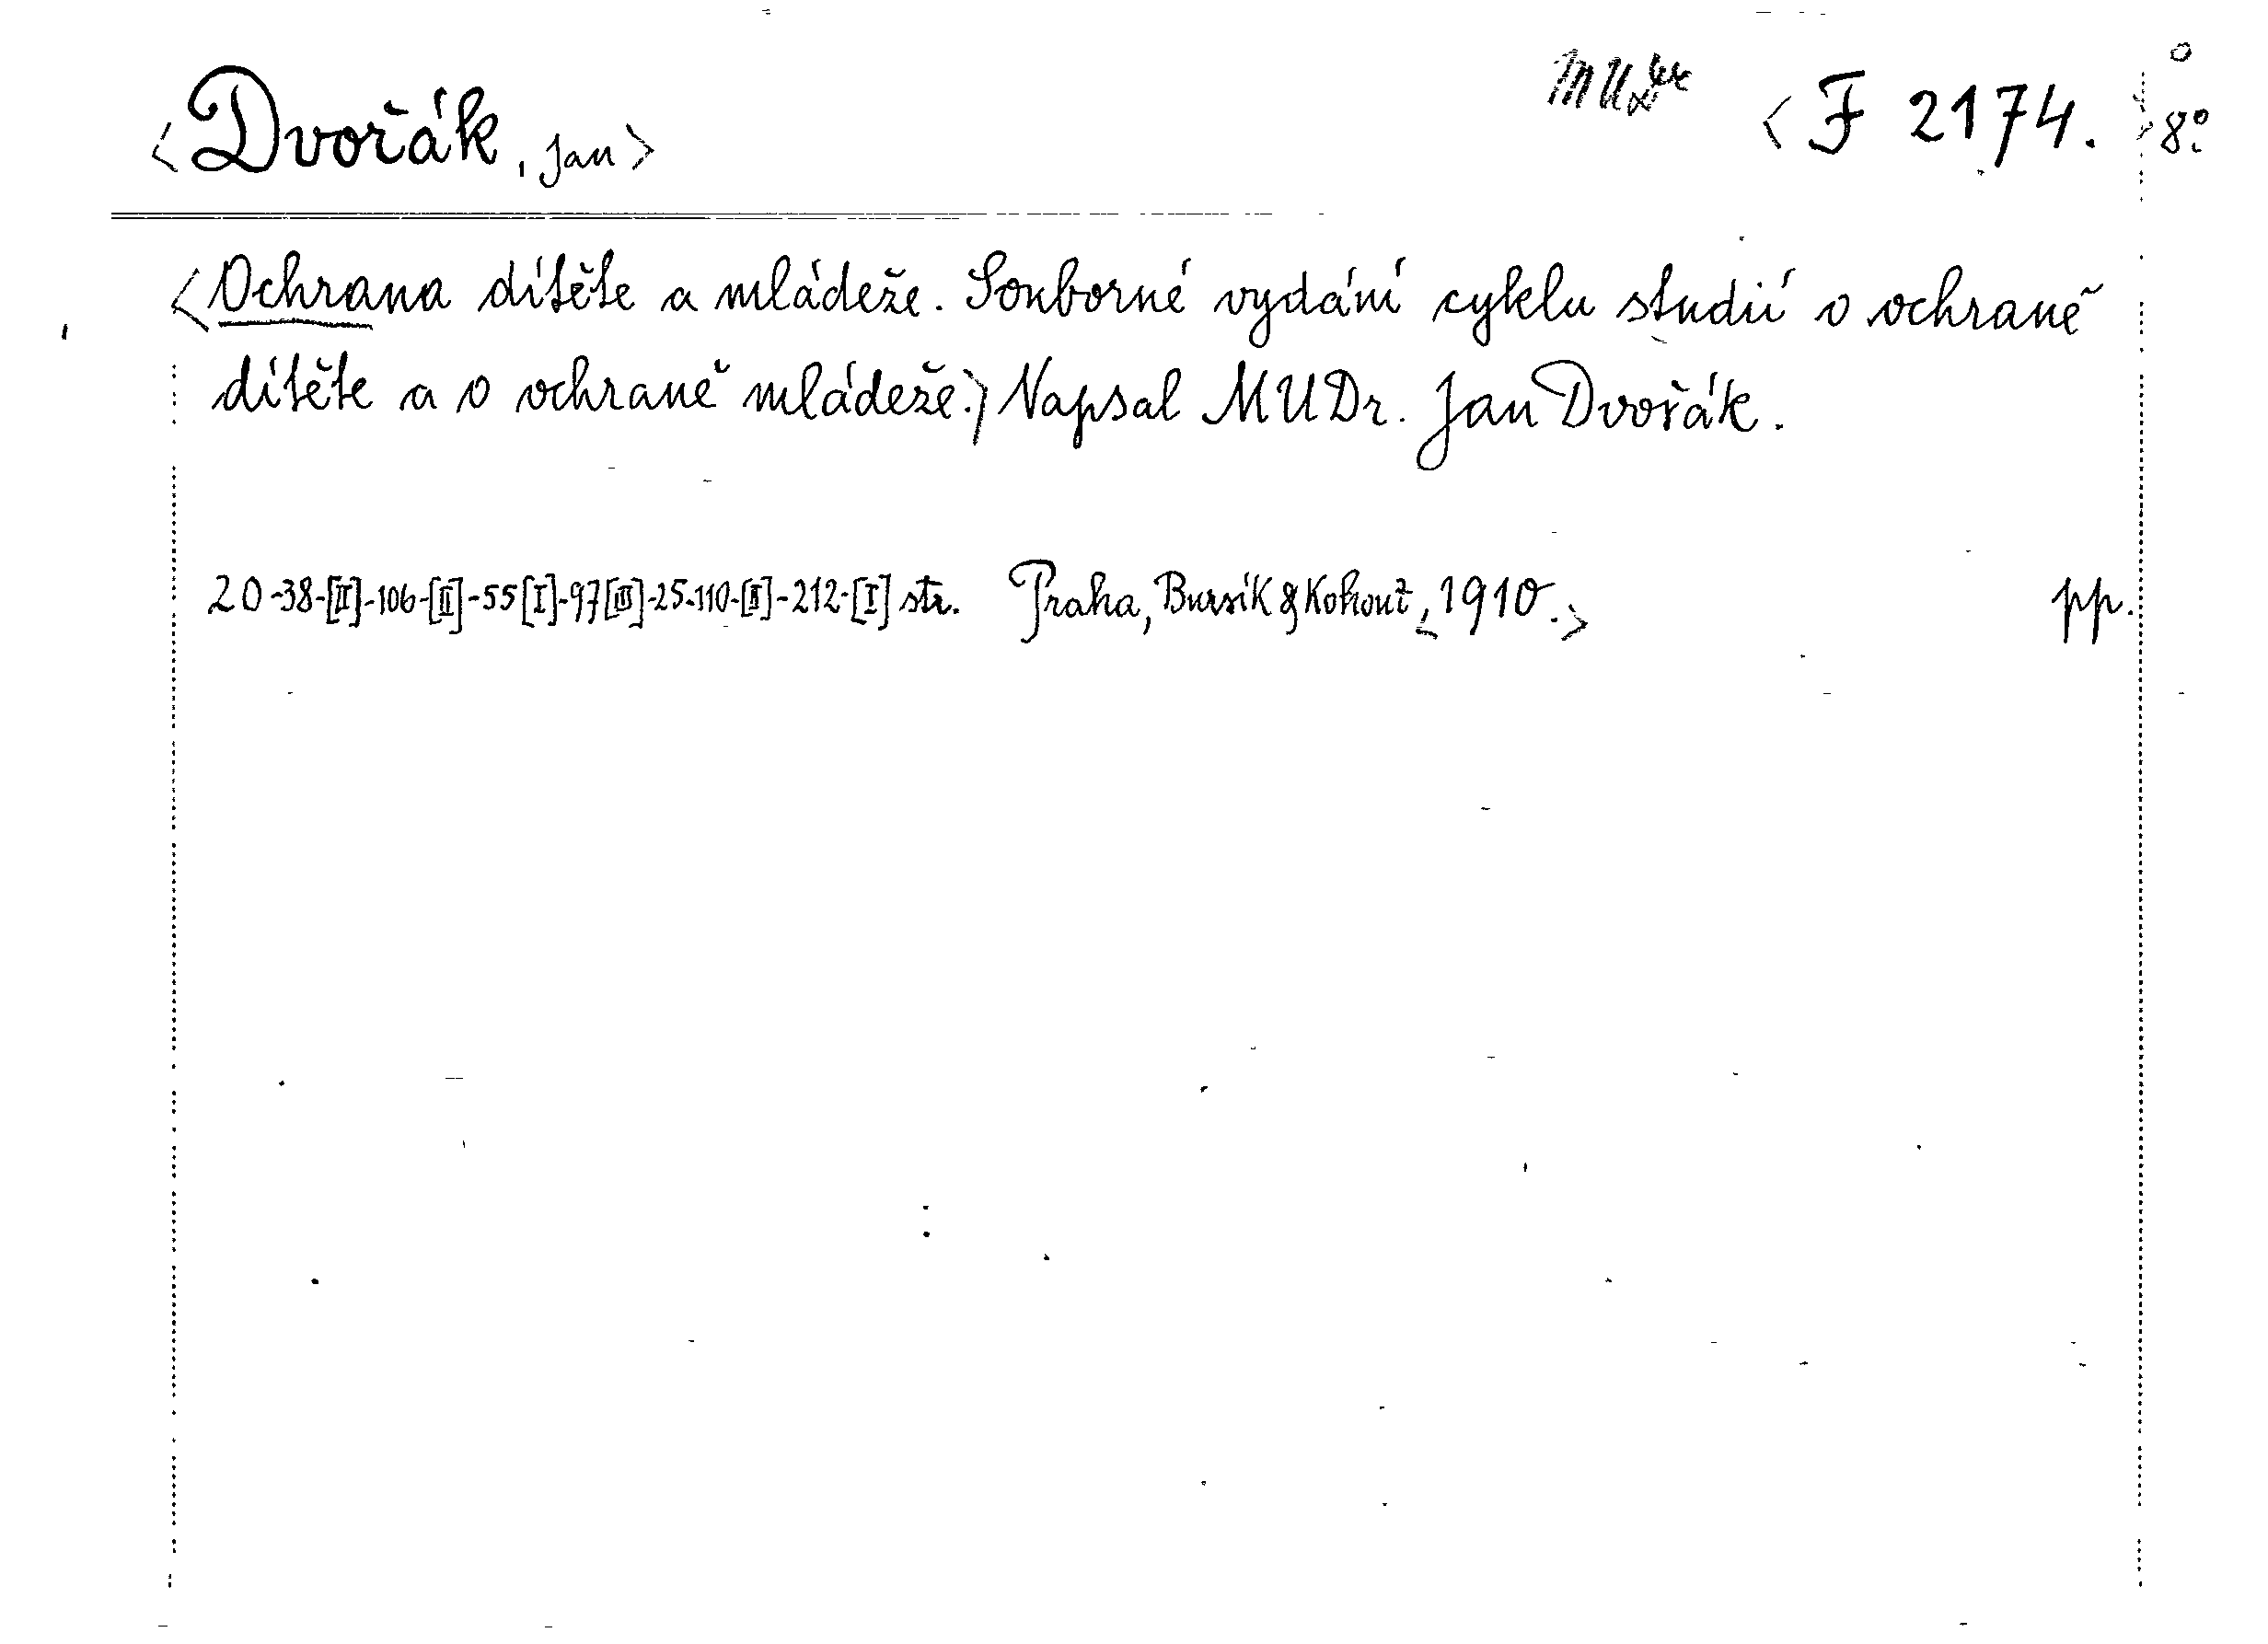 <Dvořák, Jan> <F 2174.> 8°.
<Ochrana dítěte a mládeže. Souborné vydání cyklu studií o ochraně
dítěte a o ochraně mládeže.> Napsal MUDr. Jan Dvořák.
20-38-[II]-106-[II]-55[I]-97[III]-25-110-[II]-212-[I] str. Praha, Bursík & Kohout, <1910.> pp.